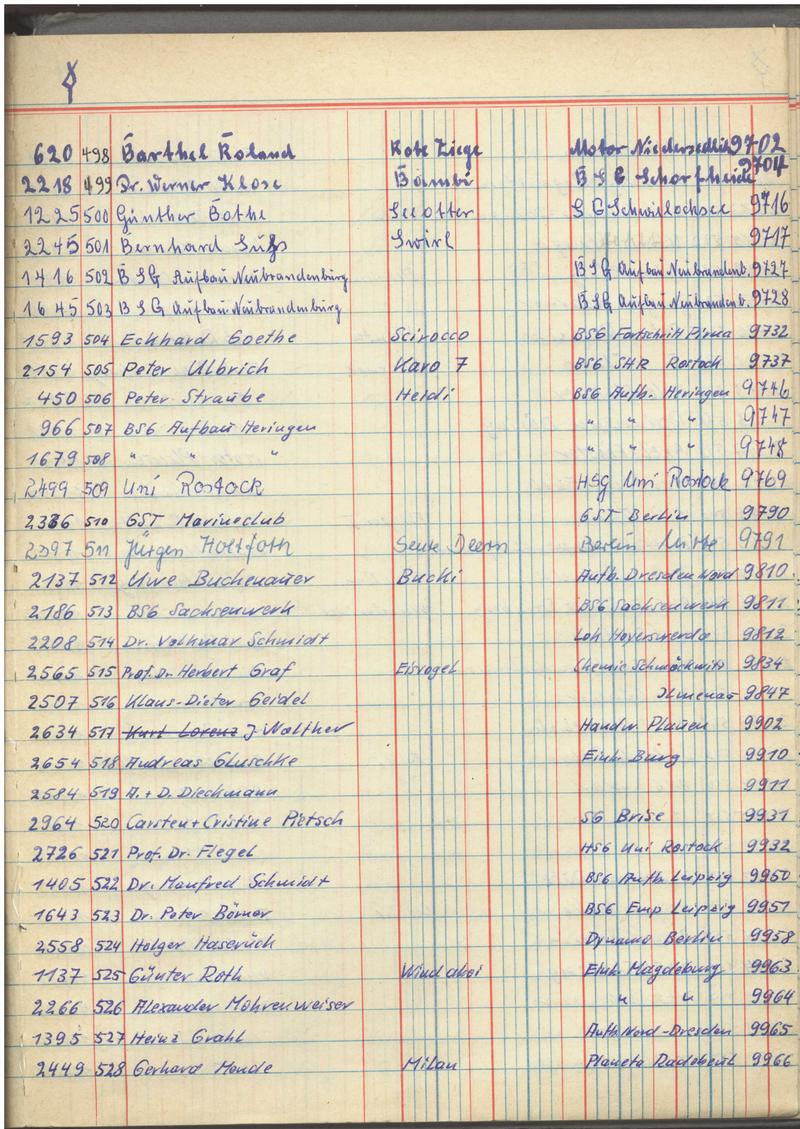 620 498 Barthel Roland Rote Ziege Motor Niedersedlitz 9702
2218 499 Dr. Werner Klose Bambi BSG Schorfheide 9704
1225 500 Günther Bothe Seeotter SG Schwielochsee 9716
2245 501 Bernhard Swirl 9717
1416 502 BSG Aufbau Neubrandenburg BSG Aufbau Neubrandenb. 9727
1645 503 BSG Aufbau Neubrandenburg BSG Aufbau Neubrandenb. 9728
1593 504 Eckhard Goethe Scirocco BSG Fortschritt Pirna 9732
2154 505 Peter Ulbrich Karo 7 BSG SHR Rostock 9737
450 506 Peter Straube Heidi BSG Aufb. Heringen 9746
966 507 BSG Aufbau Heringen " " " 9747
1679 508 " " " " " " 9748
2499 509 Uni Rostock HSG Uni Rostock 9769
2336 510 GST Marineclub GST Berlin 9790
2397 511 Jürgen Holtfoth Seute Deern Berlin Mitte 9791
2137 512 Uwe Buchenauer Buchi Aufb. Dresden Nord 9810
2186 513 BSG Sachsenwerk BSG Sachsenwerk 9811
2208 514 Dr. Volkmar Schmidt Lok Hoyerswerda 9812
2565 515 Prof. Dr. Herbert Graf Eisvogel Chemie Schmöckwitz 9834
2507 516 Klaus-Dieter Geidel Ilmenau 9847
2634 517 Kurt Lorenz J. Walther Handw. Plauen 9902
2654 518 Andreas Gluschke Einh. Burg 9910
2584 519 A. + D. Dieckmann 9911
2964 520 Carsten + Cristine Pietsch SG Brise 9931
2726 521 Prof. Dr. Flegel HSG Uni Rostock 9932
1405 522 Dr. Manfred Schmidt BSG Aufb. Leipzig 9950
1643 523 Dr. Peter Börner BSG Emp Leipzig 9951
2558 524 Holger Haserück Dynamo Berlin 9958
1137 525 Günter Roth Wind ahoi Einh. Magdeburg 9963
2266 526 Alexander Möhrenweiser " " 9964
1395 527 Heinz Grahl Aufb. Nord-Dresden 9965
2449 528 Gerhard Mende Milan Planeta Radebeul 9966